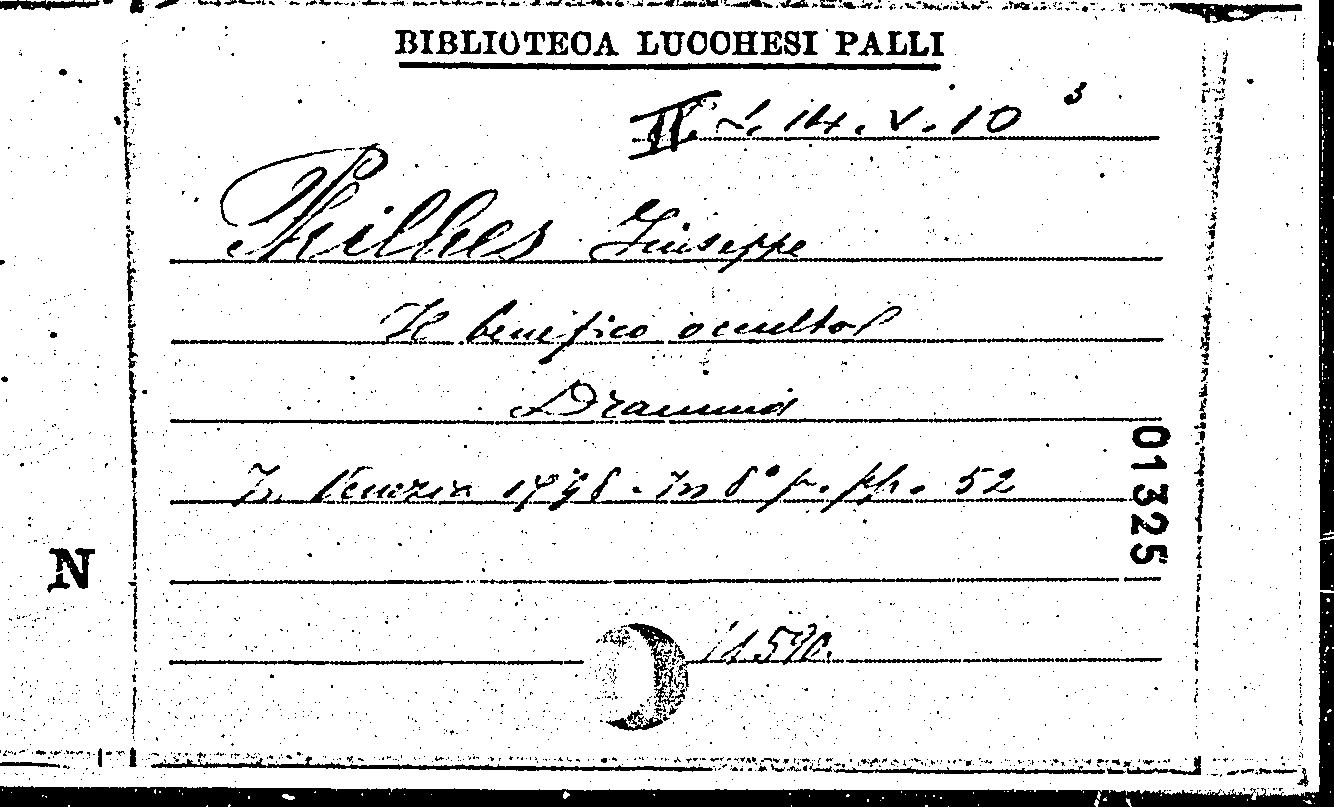 BIBLIOTECA LUCCHESI PALLI
IV. L. 14. V. 10 3
Philhes Giuseppe
Il benefico occulto
Dramma
In Venezia 1798. In 8° p. pp. 52
01325
N